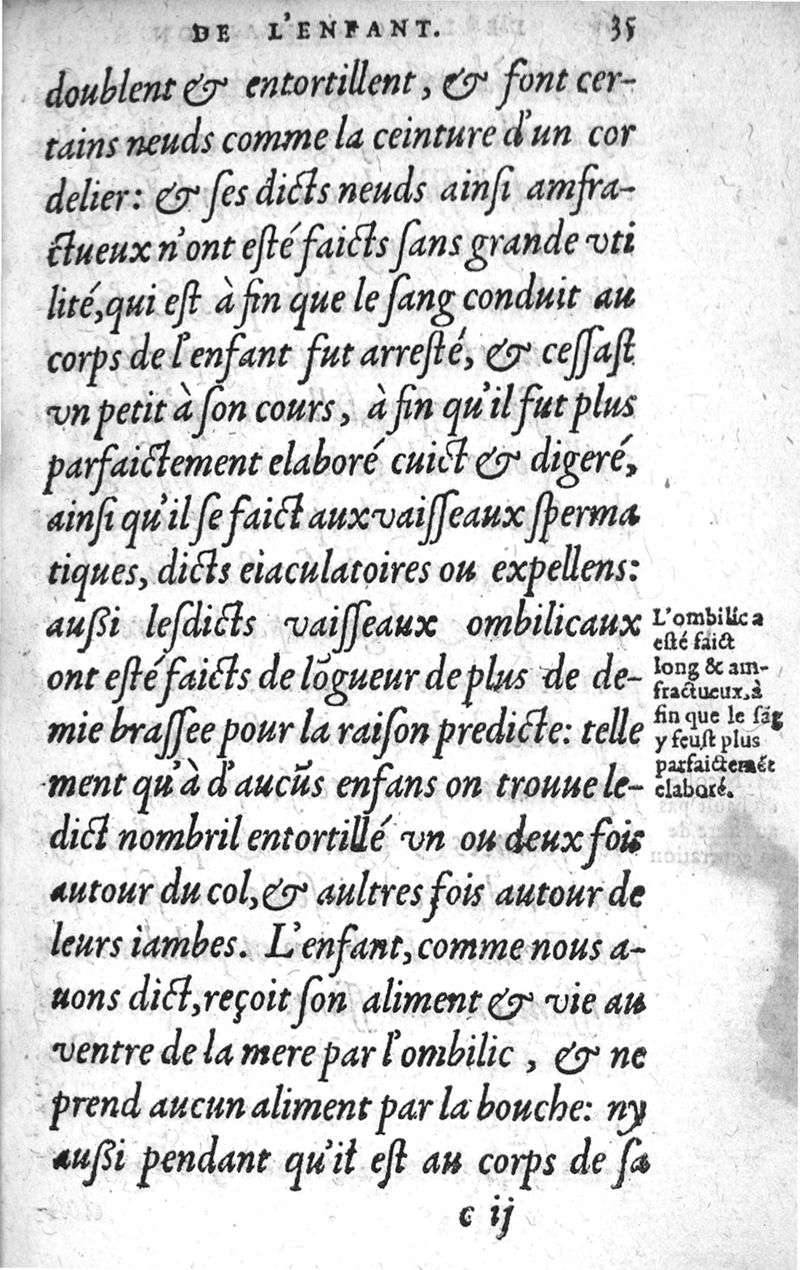 DE L'ENFANT. 35
doublent & entortillent, & font cer-
tains neuds comme la ceinture d'un cor
delier: & ſes dicts neuds ainſi amfra-
ctueux n'ont eſté faicts ſans grande vti
lité, qui eſt à fin que le ſang conduit au
corps de l'enfant fut arreſté, & ceſſaſt
vn petit à ſon cours, à fin qu'il fut plus
parfaictement elaboré cuict & digeré,
ainſi qu'il ſe faict aux vaiſſeaux ſperma
tiques, dicts eiaculatoires ou expellens:
außi leſdicts vaiſſeaux ombilicaux
ont eſté faicts de lõgueur de plus de de-
mie braſſee pour la raiſon predicte: telle
ment qu'à d'aucũs enfans on trouue le-
dict nombril entortillé vn ou deux fois
autour du col, & aultres fois autour de
leurs iambes. L'enfant, comme nous a-
uons dict, reçoit ſon aliment & vie au
ventre de la mere par l'ombilic , & ne
prend aucun aliment par la bouche: ny
außi pendant qu'il eſt au corps de ſa
c ij
L'ombilic a
eſté faict
long & am-
fractueux, à
fin que le ſãg
y feuſt plus
parfaictemẽt
elaboré.